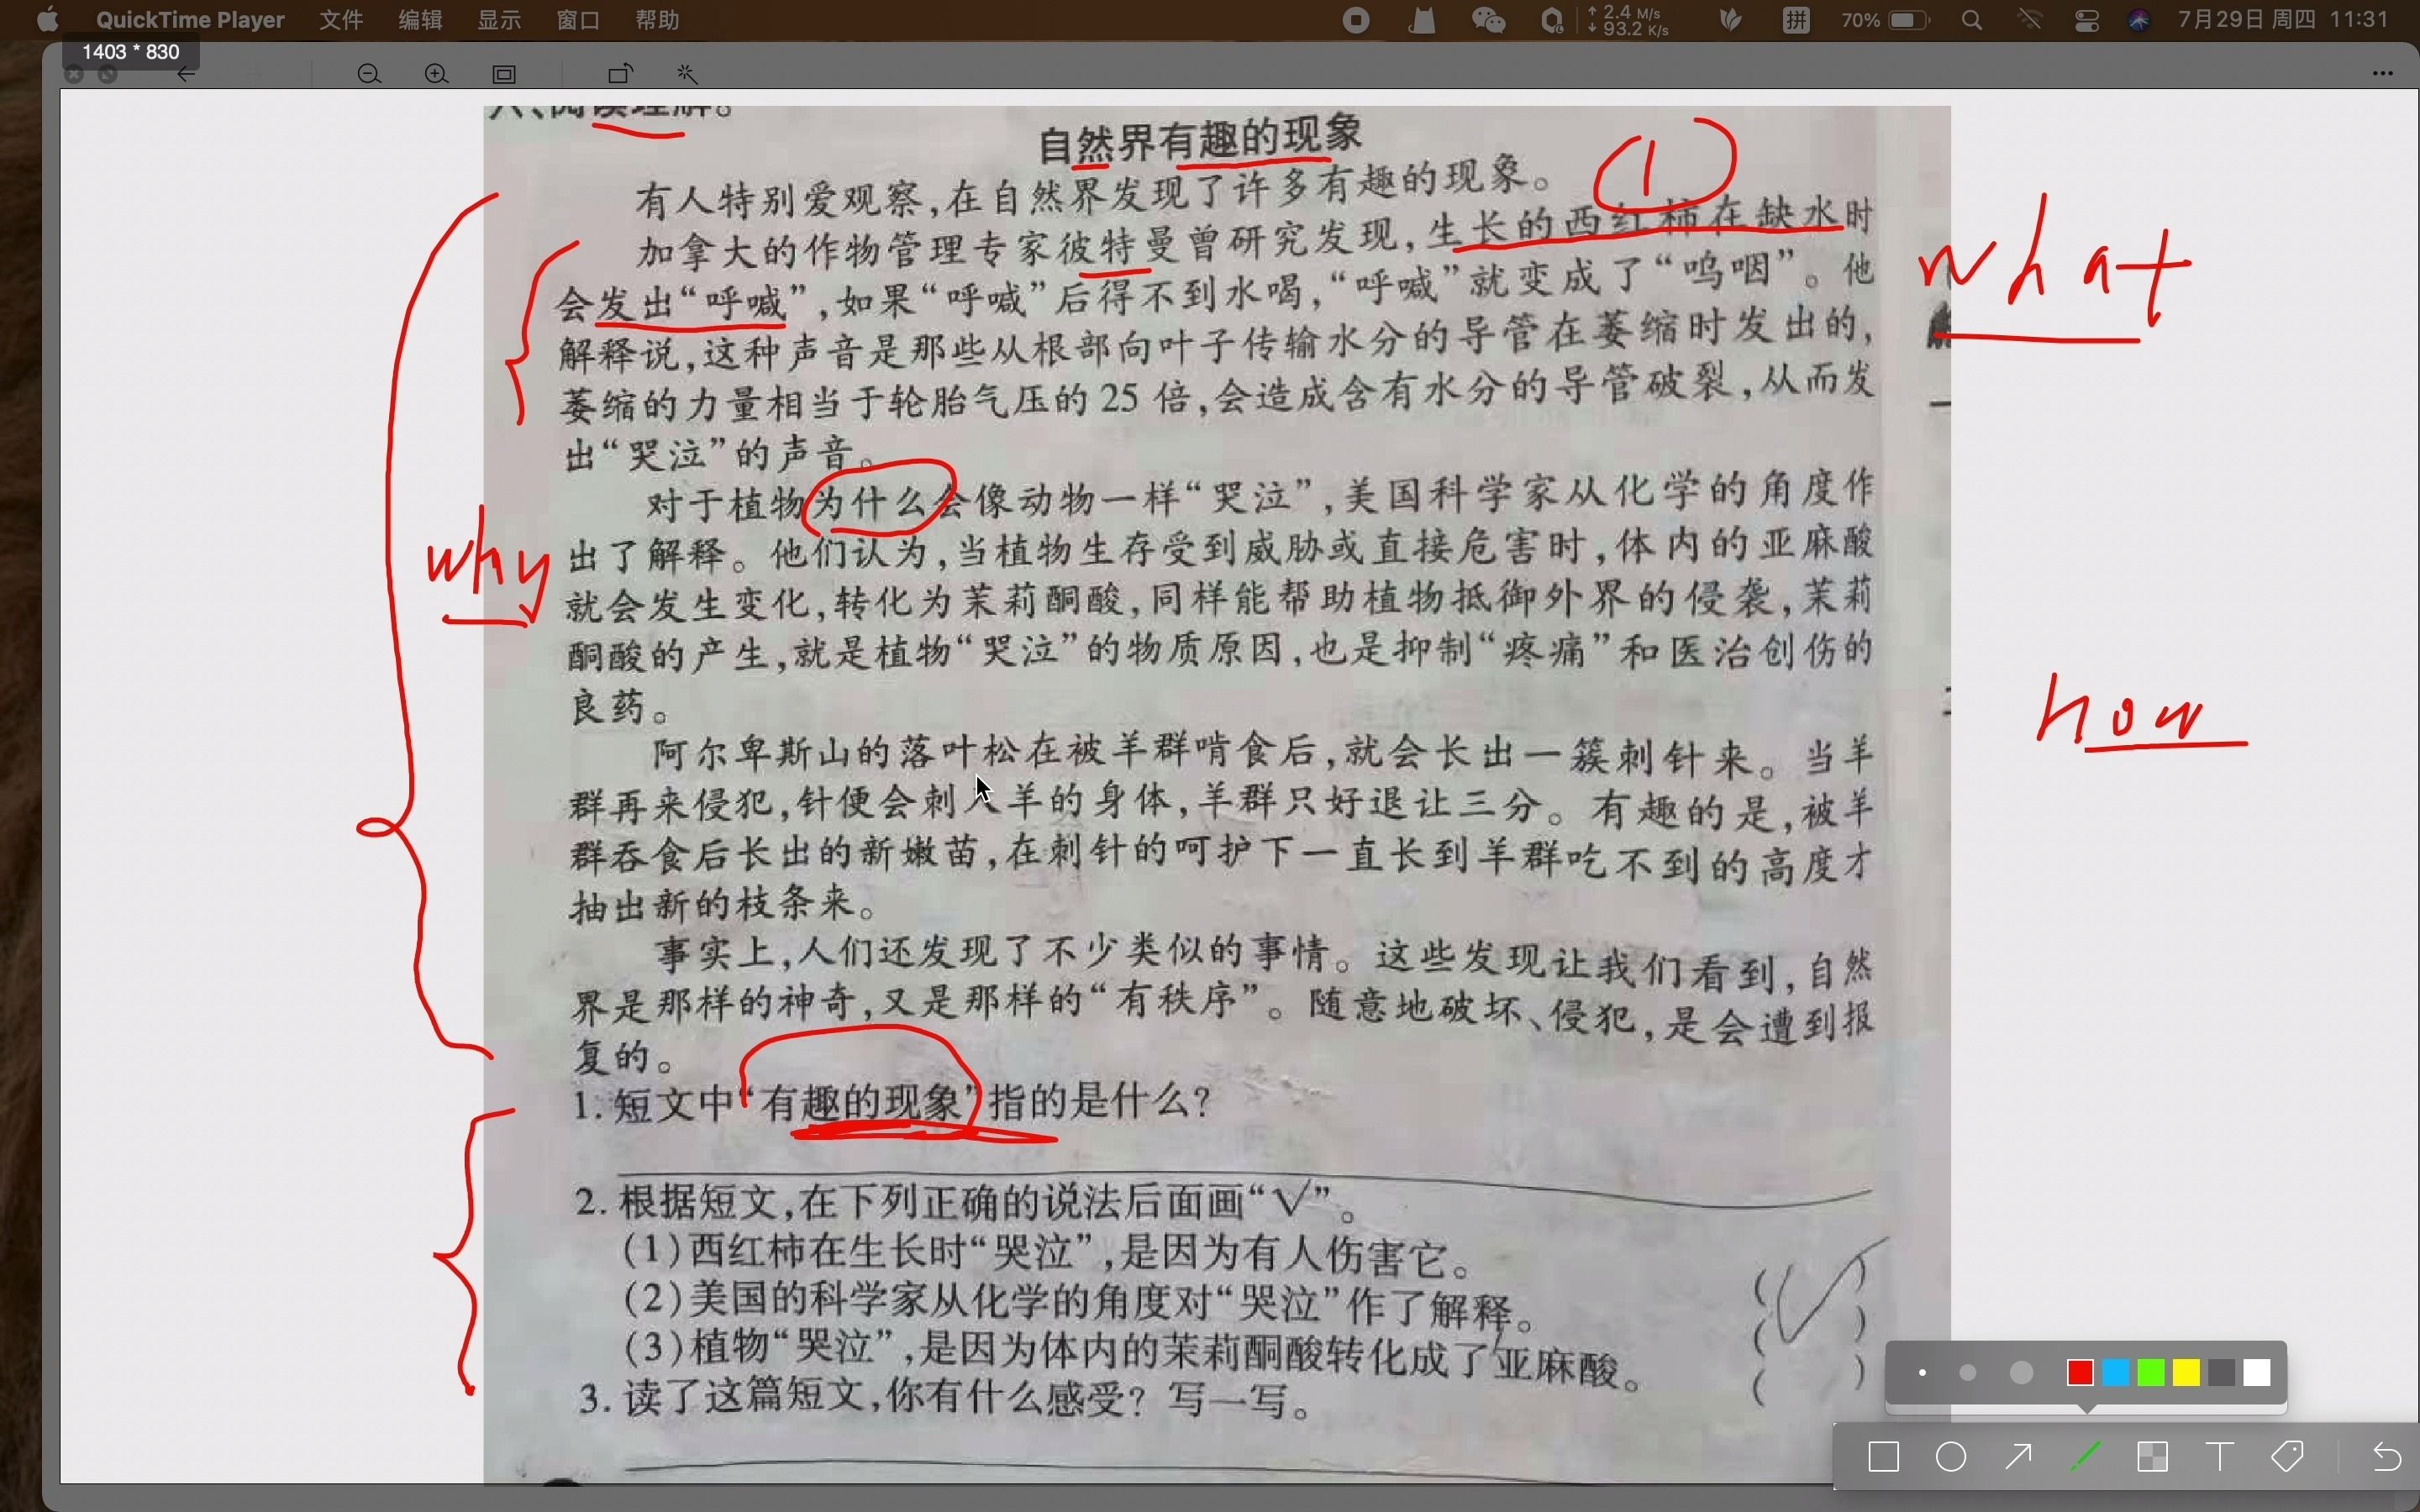 QuickTime Player 文件 编辑 显示 窗口 帮助 2.4 M/s 93.2 K/s 拼 70% 7月29日 周四 11:31
1403 * 830
六、阅读理解。
自然界有趣的现象
①
有人特别爱观察,在自然界发现了许多有趣的现象。
加拿大的作物管理专家彼特曼曾研究发现,生长的西红柿在缺水时
what
会发出“呼喊”,如果“呼喊”后得不到水喝,“呼喊”就变成了“呜咽”。他
解释说,这种声音是那些从根部向叶子传输水分的导管在萎缩时发出的,
萎缩的力量相当于轮胎气压的25倍,会造成含有水分的导管破裂,从而发
出“哭泣”的声音。
对于植物为什么会像动物一样“哭泣”,美国科学家从化学的角度作
why
出了解释。他们认为,当植物生存受到威胁或直接危害时,体内的亚麻酸
就会发生变化,转化为茉莉酮酸,同样能帮助植物抵御外界的侵袭,茉莉
酮酸的产生,就是植物“哭泣”的物质原因,也是抑制“疼痛”和医治创伤的
良药。
how
阿尔卑斯山的落叶松在被羊群啃食后,就会长出一簇刺针来。当羊
群再来侵犯,针便会刺入羊的身体,羊群只好退让三分。有趣的是,被羊
群吞食后长出的新嫩苗,在刺针的呵护下一直长到羊群吃不到的高度才
抽出新的枝条来。
事实上,人们还发现了不少类似的事情。这些发现让我们看到,自然
界是那样的神奇,又是那样的“有秩序”。随意地破坏、侵犯,是会遭到报
复的。
1. 短文中“有趣的现象”指的是什么?
2. 根据短文,在下列正确的说法后面画“√”。
(1)西红柿在生长时“哭泣”,是因为有人伤害它。 ( )
(2)美国的科学家从化学的角度对“哭泣”作了解释。 (√)
(3)植物“哭泣”,是因为体内的茉莉酮酸转化成了亚麻酸。 ( )
3. 读了这篇短文,你有什么感受? 写一写。